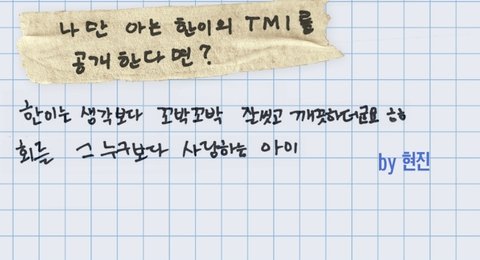 나만 아는 한이의 TMI를
공개한다면?
한이는 생각보다 꼬박꼬박 잘씻고 깨끗하더군요 ㅎㅎ
회를 그 누구보다 사랑하는 아이
by 현진